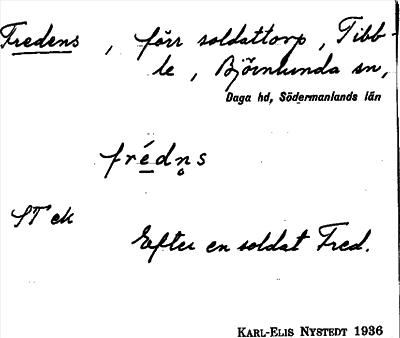 Fredens, förr soldattorp, Tibb-
le, Björnlunda sn,
Daga hd, Södermanlands län
frédn̥s
ST ek
Efter en soldat Fred.
KARL-ELIS NYSTEDT 1936